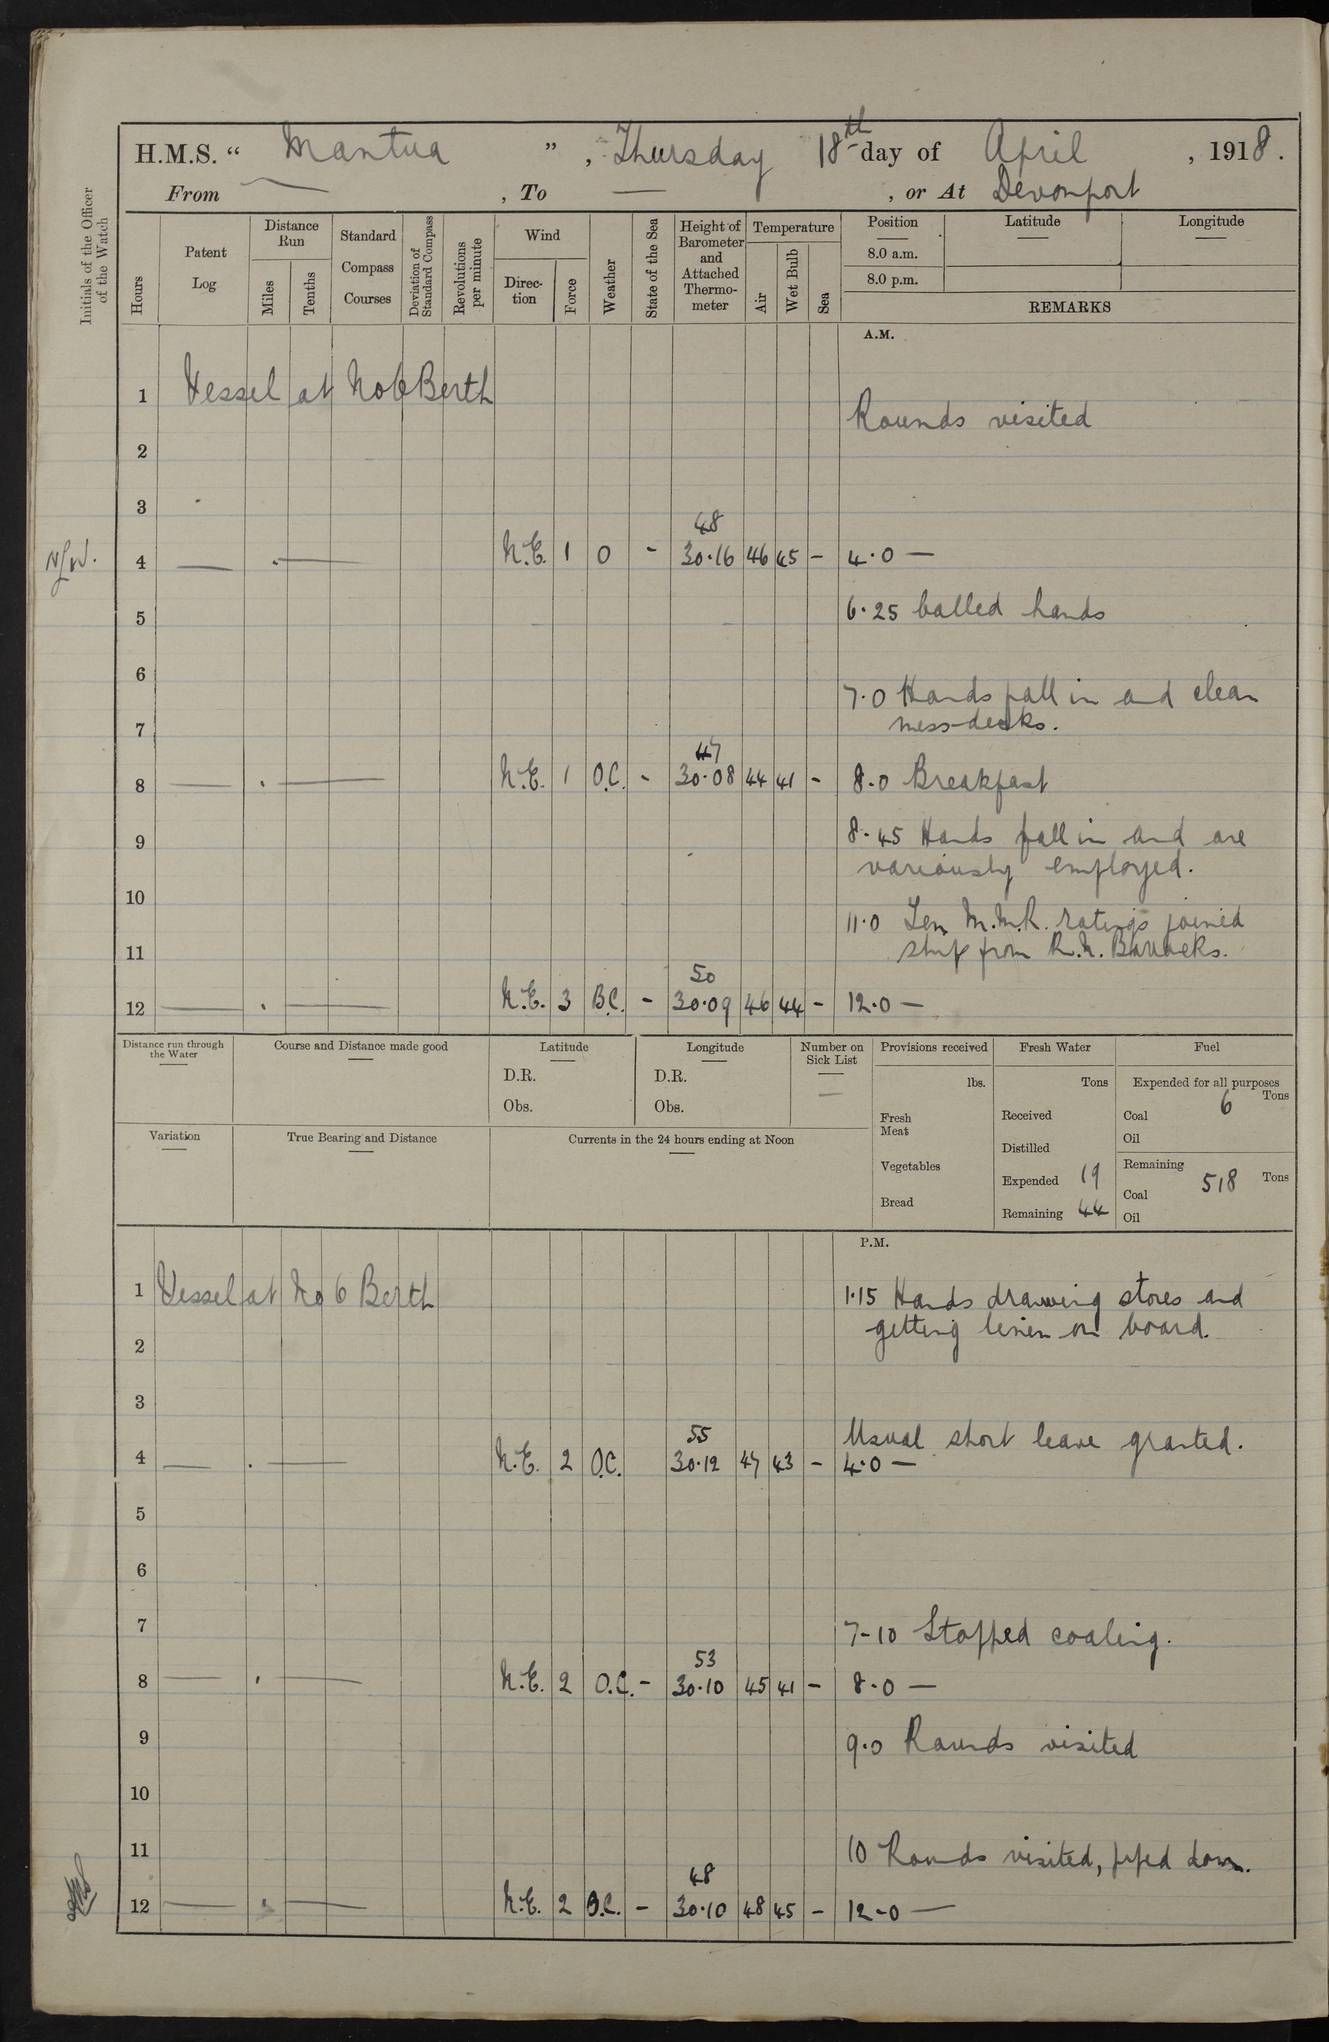 H.M.S. “ Mantua ”, Thursday 18th day of April, 1918.
From —, To —, or At Devonport
Initials of the Officer of the Watch
Hours
Patent Log
Distance Run
Miles
Tenths
Standard Compass Courses
Deviation of Standard Compass
Revolutions per minute
Wind
Direction
Force
Weather
State of the Sea
Height of Barometer and Attached Thermometer
Temperature
Air
Wet Bulb
Sea
Position
Latitude
Longitude
8.0 a.m.
8.0 p.m.
REMARKS
A.M.
1 Vessel at No 6 Berth
Rounds visited
2
3
48
4 — . — N.E. 1 O - 30.16 46 45 - 4.0 —
5 6.25 Called hands
6
7.0 Hands fall in and clean
7 mess-decks.
47
8 — . — N.E. 1 O.C. - 30.08 44 41 - 8.0 Breakfast
9 8.45 Hands fall in and are
variously employed.
10
11.0 Ten M.M.R. ratings joined
11 ship from R.N. Barracks.
50
12 — . — N.E. 3 B.C. - 30.09 46 44 - 12.0 —
Distance run through the Water
Course and Distance made good
Latitude
D.R.
Obs.
Longitude
D.R.
Obs.
Number on Sick List
—
Variation
True Bearing and Distance
Currents in the 24 hours ending at Noon
Provisions received
lbs.
Fresh Meat
Vegetables
Bread
Fresh Water
Tons
Received
Distilled
Expended 19
Remaining 44
Fuel
Expended for all purposes
Coal 6 Tons
Oil
Remaining
Coal 518 Tons
Oil
P.M.
1 Vessel at No 6 Berth 1.15 Hands drawing stores and
getting linen on board.
2
3
55 Usual short leave granted.
4 — . — N.E. 2 O.C. 30.12 47 43 - 4.0 —
5
6
7 7-10 Stopped coaling.
53
8 — . — N.E. 2 O.C. - 30.10 45 41 - 8.0 —
9 9.0 Rounds visited
10
11 10 Rounds visited, piped down.
48
12 — . — N.E. 2 B.C. - 30.10 48 45 - 12-0 —